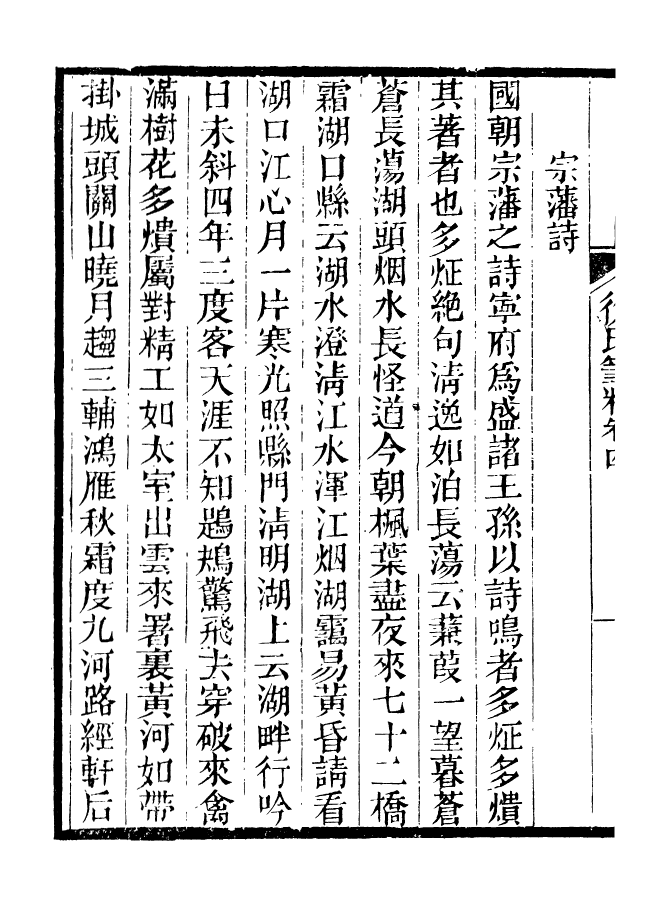 徐氏筆精卷四
宗藩詩
國朝宗藩之詩寧府爲盛諸王孫以詩鳴者多炡多熼
其著者也多炡絶句清逸如泊長蕩云蒹葭一望暮蒼
蒼長蕩湖頭烟水長怪道今朝楓葉盡夜來七十二橋
霜湖口縣云湖水澄清江水渾江烟湖靄易黄昏請看
湖口江心月一片寒光照縣門清明湖上云湖畔行吟
日未斜四年三度客天涯不知鶗鴂驚飛去穿破來禽
滿樹花多熼屬對精工如太室出雲來署裏黄河如帶
掛城頭關山曉月趨三輔鴻雁秋霜度九河路經軒后